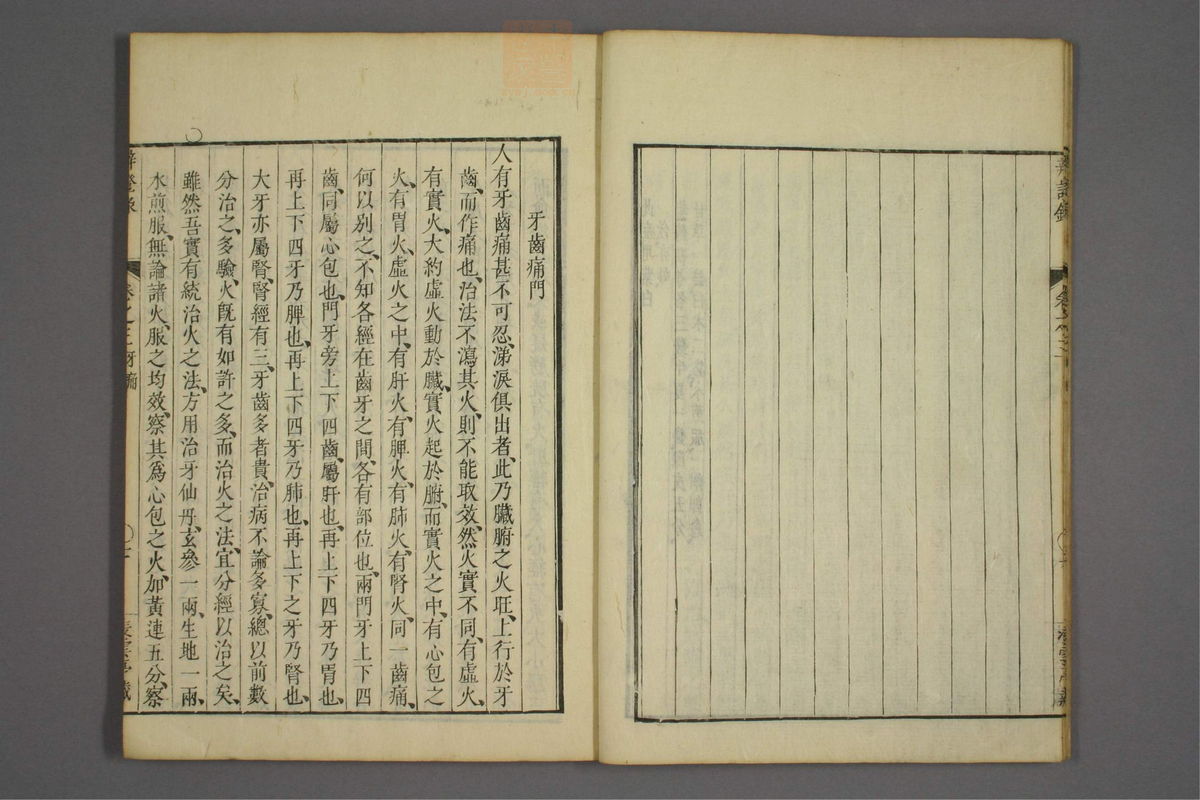 牙齒痛門
人有牙齒痛甚不可忍、涕淚俱出者、此乃臟腑之火旺、上行於牙
齒、而作痛也、治法不瀉其火、則不能取效、然火實不同、有虛火、
有實火、大約虛火動於臟、實火起於腑、而實火之中、有心包之
火、有胃火、虛火之中、有肝火、有脾火、有肺火、有腎火、同一齒痛、
何以別之、不知各經在齒牙之間、各有部位也、兩門牙上下四
齒、同屬心包也、門牙旁上下四齒、屬肝也、再上下四牙乃胃也、
再上下四牙乃脾也、再上下四牙乃肺也、再上下之牙乃腎也、
大牙亦屬腎、腎經有三、牙齒多者貴、治病不論多寡、總以前數
分治之、多驗、火旣有如許之多、而治火之法、宜分經以治之矣、
雖然吾實有統治火之法、方用治牙仙丹、玄參一兩、生地一兩、
水煎服、無論諸火、服之均效、察其爲心包之火、加黃連五分、察
卷之三 牙痛